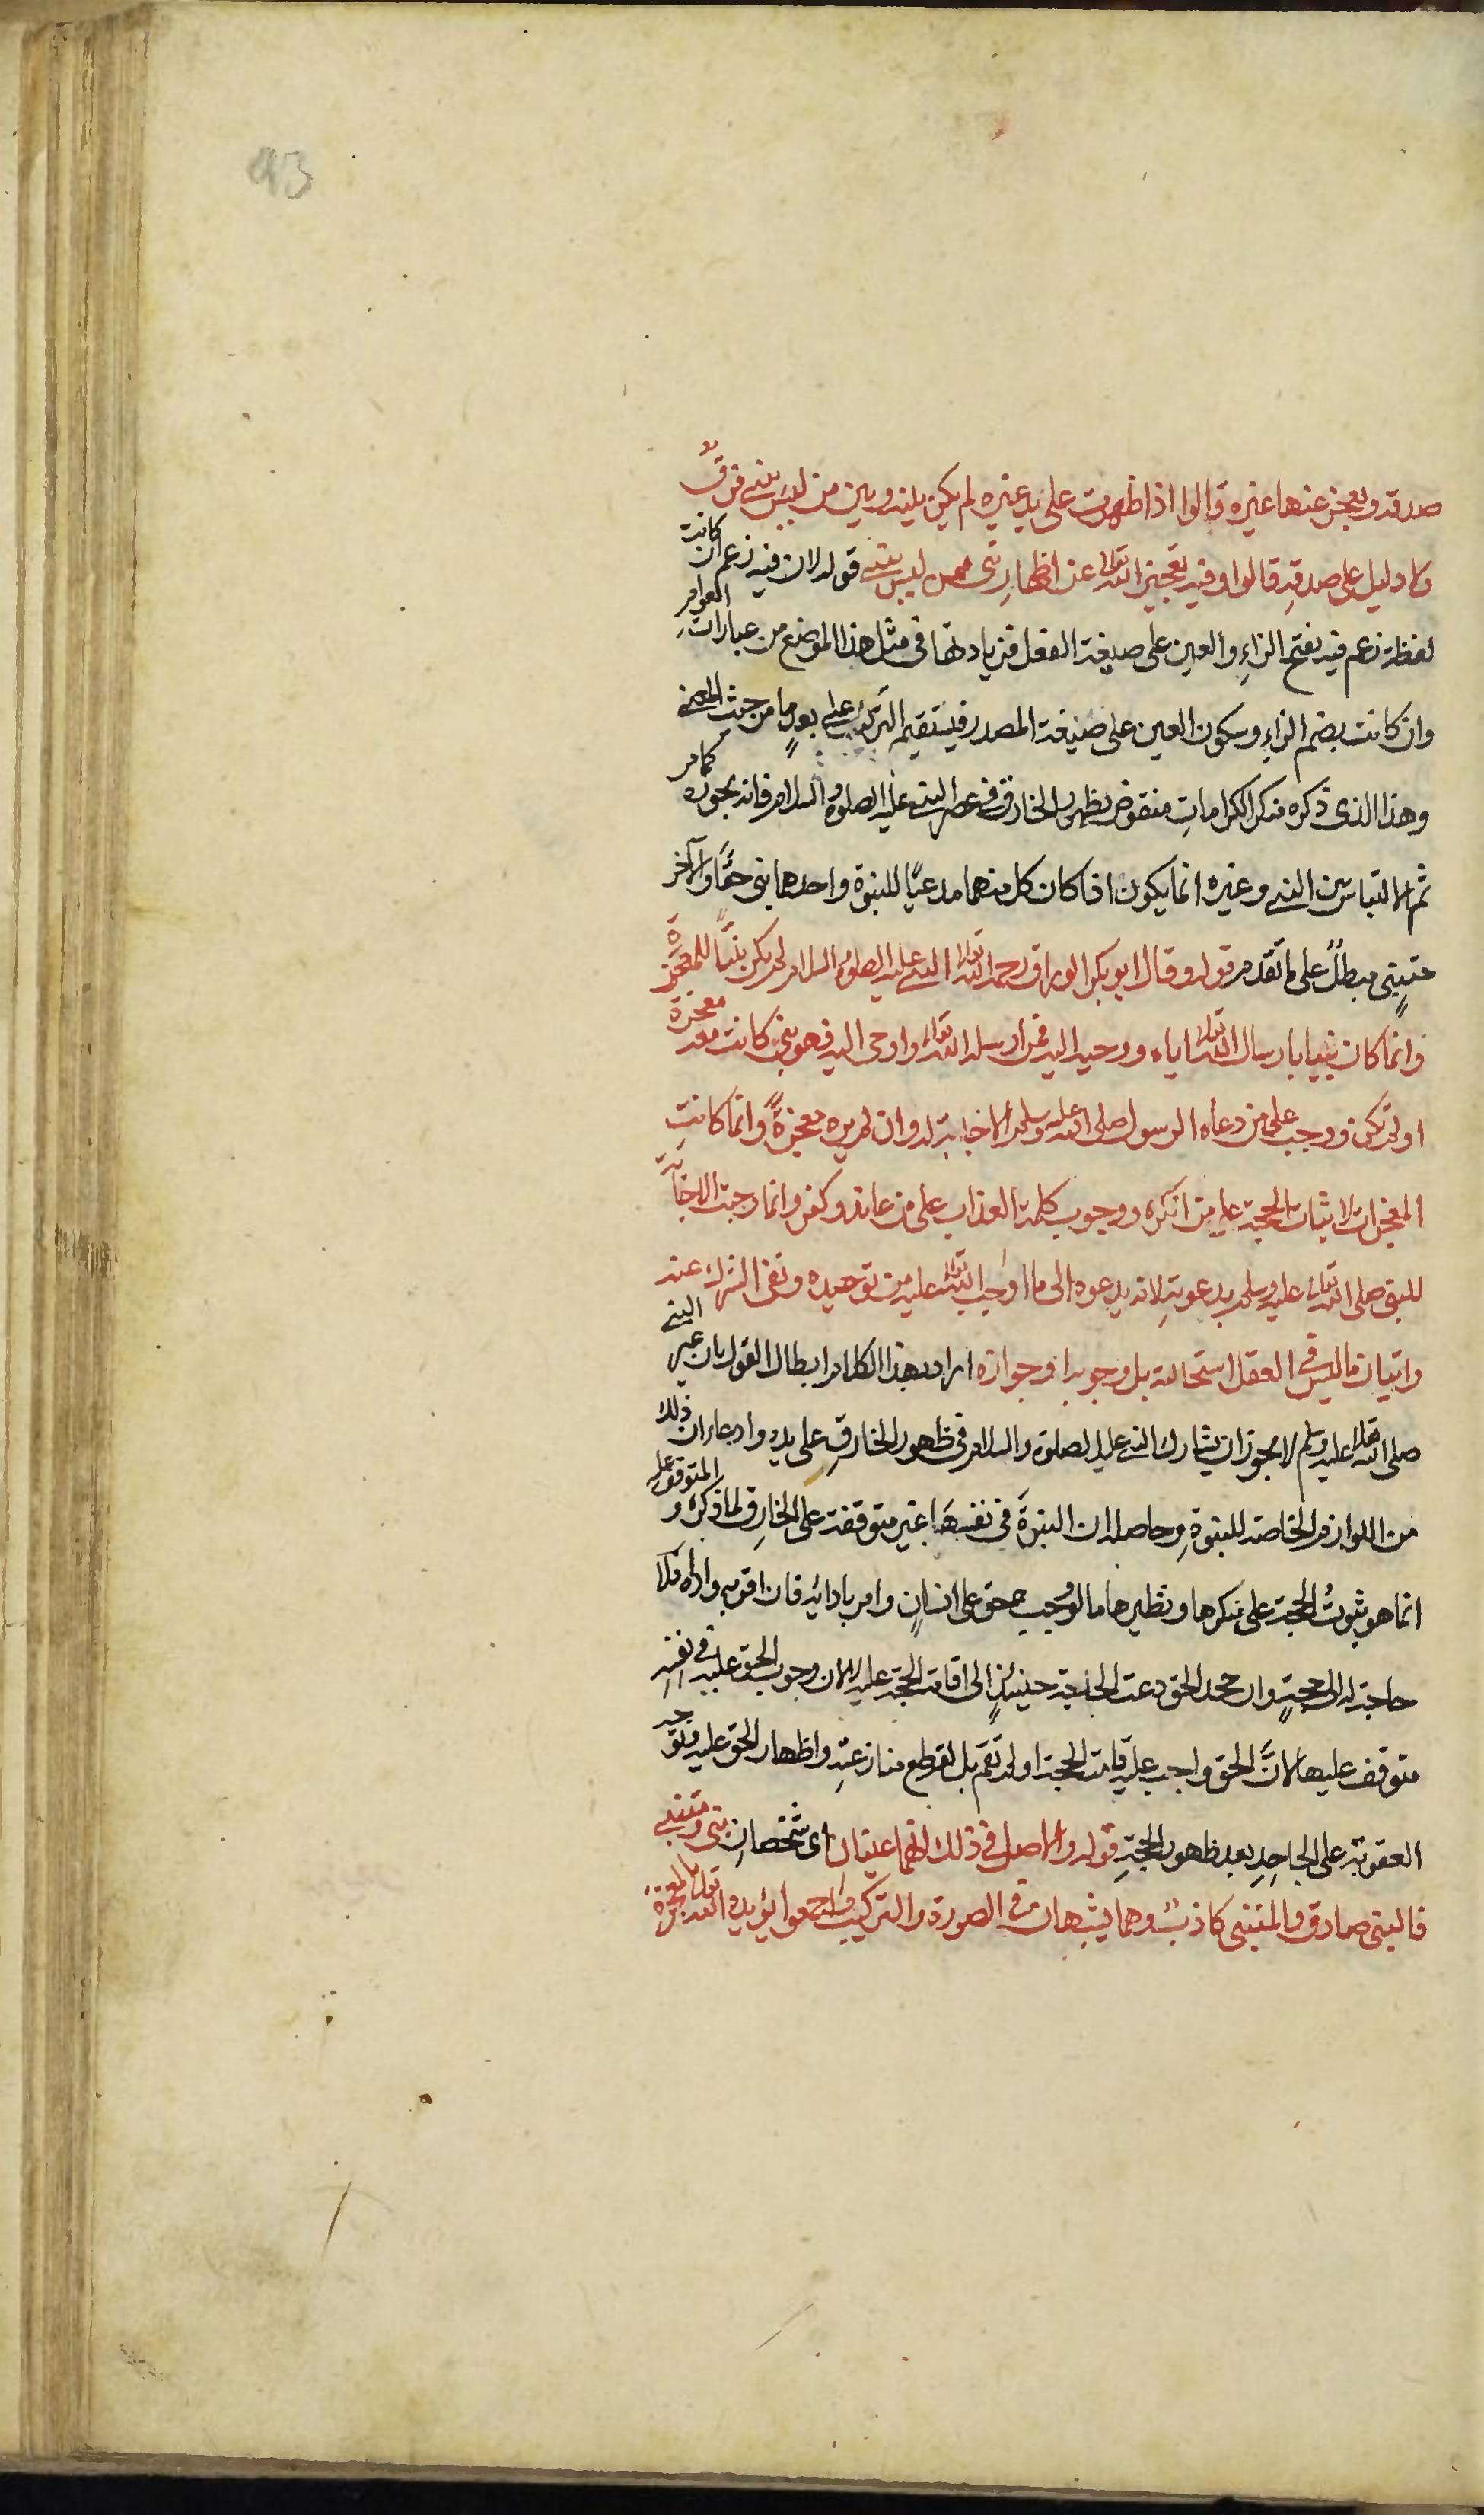 93
صدقه ويعجز عنها غيره قالوا اذا ظهرت على يد غيره لم يكن بينه وبين من ليس بنبي فرق
ولا دليل على صدقهِ قالوا وفيه تعجيز الله تعالى عن اظهارِ نبي ممن ليس بنبي قوله لان فيه زعم ان كانت
لفظة زعم فيه بفتح الزاءِ والعين على صيغة الفعل فزيادتها فى مثل هذا الموضع من عباراتِ العوامر
وان كانت بضم الزاءِ وسكون العين على صيغة المصدر فيستقيم التركيب على بعدٍ ما من حيث المعنى
وهذا الذى ذكره منكر الكراماتِ منقوض بظهور الخارق فى عصر النبى عليه الصلوة والسلام فانه يجوزه كما مر
ثم الالتباس بين النبى وغيره انما يكون اذا كان كل منهما مدعيًا للنبوة واحدهما نبى حقًا والآخر
متنبٍ مبطلٌ على ما تقدم قوله وقال ابو بكر الوراق رحمه الله تعالى النبى عليه الصلوة السلام لم يكن نبيًّا للمعجزة
وانما كان نبيا بارسال الله تعالى اياه ووحيه اليه فمن ارسله الله تعالى واوحى اليه فهو نبى كانت معه معجزة
او لم تكن ووجب على من دعاه الرسول صلى الله عليه وسلم الاجابة له وان لم يره معجزةً وانما كانتِ
المعجزات لاثبات الحجة على من انكره ووجوب كلمة العذاب على من عاند وكفر وانما وجبت الاجابة
للنبى صلى الله تعالى عليه وسلم بدعوتهِ لانه يدعوه الى ما اوجب الله تعالى عليه من توحيده ونفى الشرك عنه
واتيان ما ليس فى العقل استحالته بل وجوبه او جوازه اراد بهذا الكلام ابطال القول بان غير النبى
صلى الله تعالى عليه وسلم لا يجوز ان يشارك النبى عليه الصلوة والسلام فى ظهور الخارقِ على يده وادعاء ان ذلك
من اللوازم الخاصة للنبوةِ وحاصله ان النبوةَ فى نفسهَا غير متوقفة على الخارقِ لما ذكره والمتوقف عليه
انما هو ثبوتُ الحجة على منكرها ونظيرها ما لو وجب حق على انسانٍ وامر بادائِه فان اقر به واداه فلا
حاجة له الى حجةٍ وان جحد الحق دعت الحاجة حينئذٍ الى اقامة الحجة عليه لا لان وجوب الحق عليه فى نفسهِ
متوقف عليها لانَّ الحق واجب عليه قامت الحجة او لم تقم بل لقطع منازعتهِ واظهار الحق عليه وتوجه
العقوبة على الجاحِدِ بعد ظهور الحجةِ قوله والاصل فى ذلك انهما عينان اى شخصانِ نبى ومتنبى
فالنبى صادق والمتنبى كاذبٌ وهما يشبهان فى الصورة والتركيب واجمعوا يؤيده الله تعالى بالمعجزة